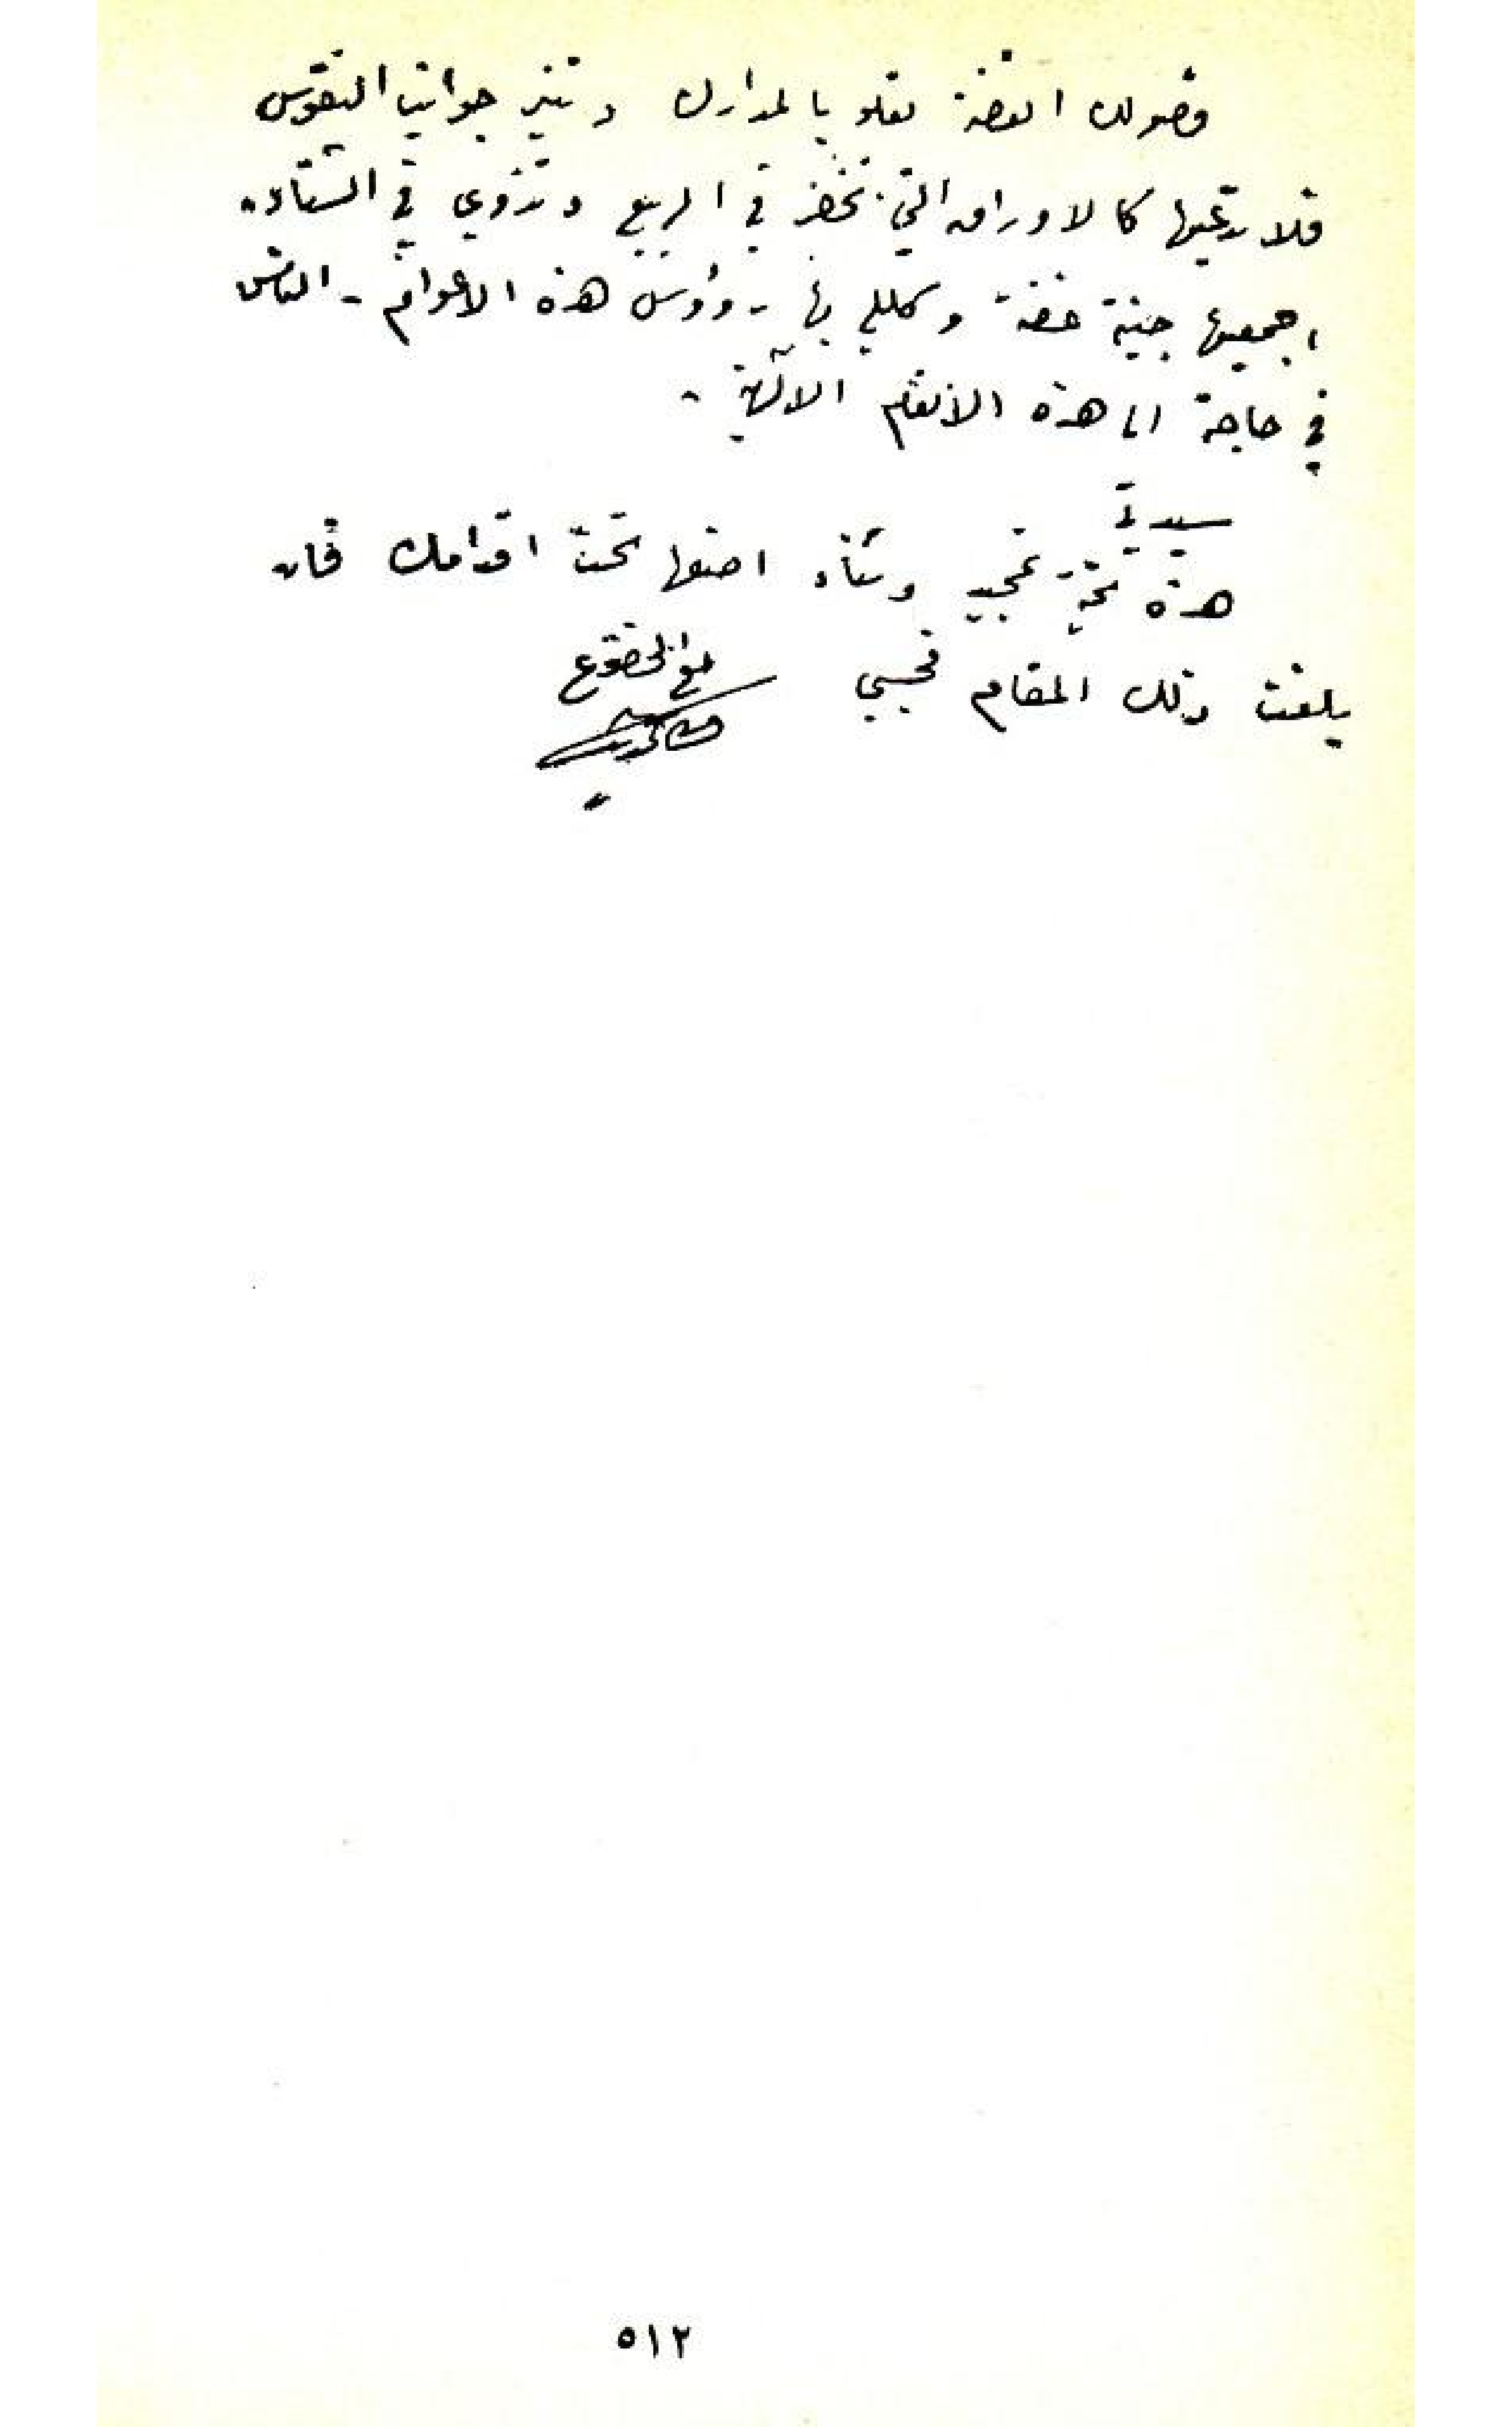 فصولك الغضة تعلو بالمدارك وتنير جوانب النفوس
فلا تدعيها كالاوراق التي تخضر في الربيع وتذوي في الشتاء.
اجمعيها جنينة غضة وكللي بها رؤوس هذه الاعوام - الناس
في حاجة الى هذه الانغام الالهية .
سيدتي
هذه تحية تمجيد وثناء اضعها تحت اقدامك فان
بلغت ذلك المقام فحسبي
مع الخضوع
٥١٢